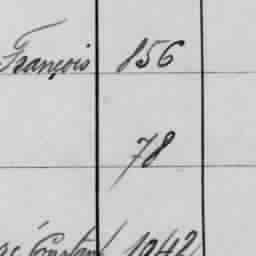 François 156
78
Constant 1942